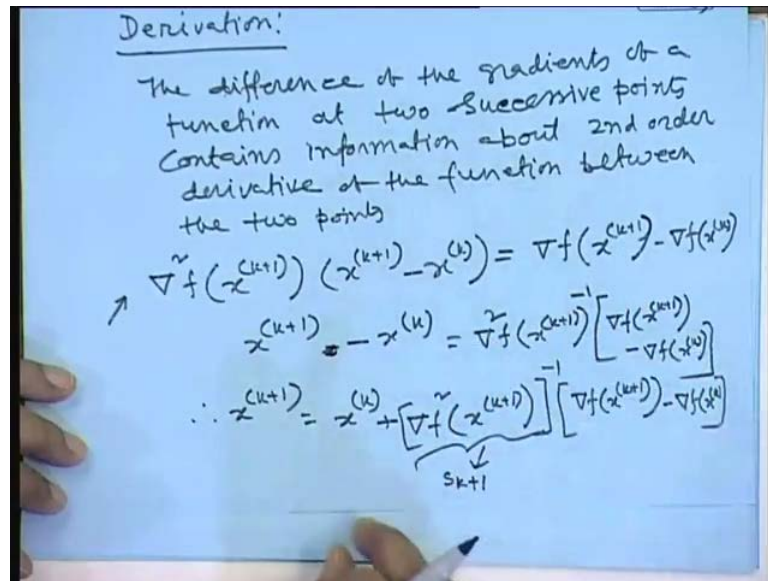 Derivation:
The difference of the gradients of a
function at two successive points
Contains information about 2nd order
derivative of the function between
the two points
∇²f(x^(k+1)) (x^(k+1) - x^(k)) = ∇f(x^(k+1)) - ∇f(x^(k))
x^(k+1) - x^(k) = ∇²f(x^(k+1))^-1 [∇f(x^(k+1))
- ∇f(x^(k))]
∴ x^(k+1) = x^(k) + [∇²f(x^(k+1))]^-1 [∇f(x^(k+1)) - ∇f(x^(k))]
S_k+1